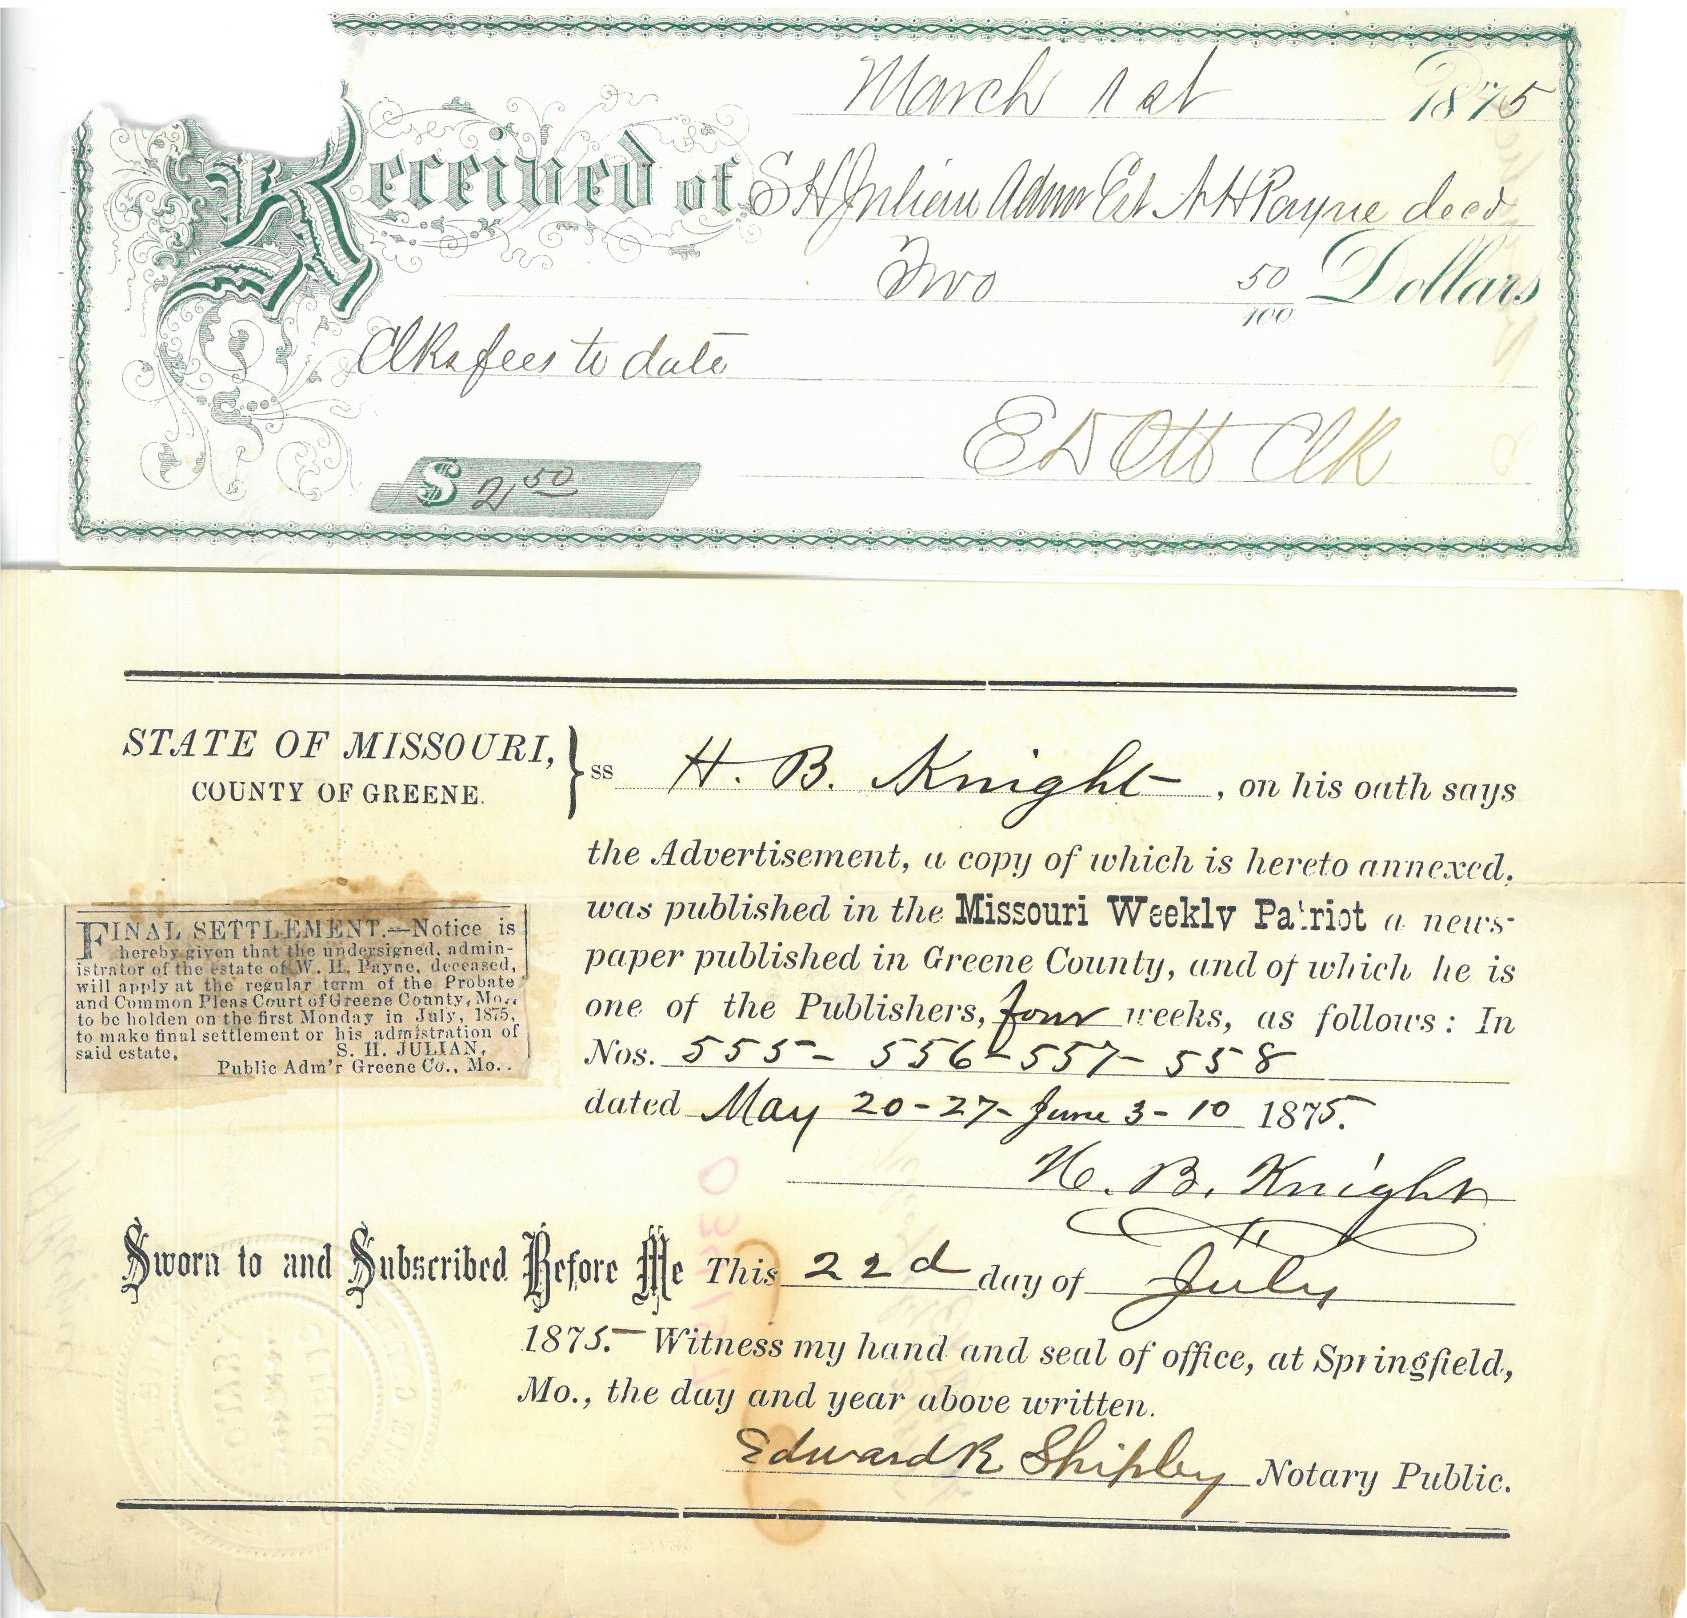 March 1st 1875
Received of S H Julian Admr Est W H Payne decd
Two 50/100 Dollars
Clks fees to date
E D Ott Clk
$ 2,50
STATE OF MISSOURI,
COUNTY OF GREENE.
} ss H. B. Knight, on his oath says
the Advertisement, a copy of which is hereto annexed,
was published in the Missouri Weekly Patriot a news-
paper published in Greene County, and of which he is
one of the Publishers, four weeks, as follows: In
Nos. 555- 556-557- 558
dated May 20-27- June 3-10 1875.
H. B. Knight
FINAL SETTLEMENT.—Notice is
hereby given that the undersigned, admin-
istrator of the estate of W. H. Payne, deceased,
will apply at the regular term of the Probate
and Common Pleas Court of Greene County, Mo.,
to be holden on the first Monday in July, 1875,
to make final settlement or his admistration of
said estate, S. H. JULIAN,
Public Adm'r Greene Co., Mo..
Sworn to and Subscribed Before Me This 22d day of July
1875. Witness my hand and seal of office, at Springfield,
Mo., the day and year above written.
Edward R Shipley Notary Public.